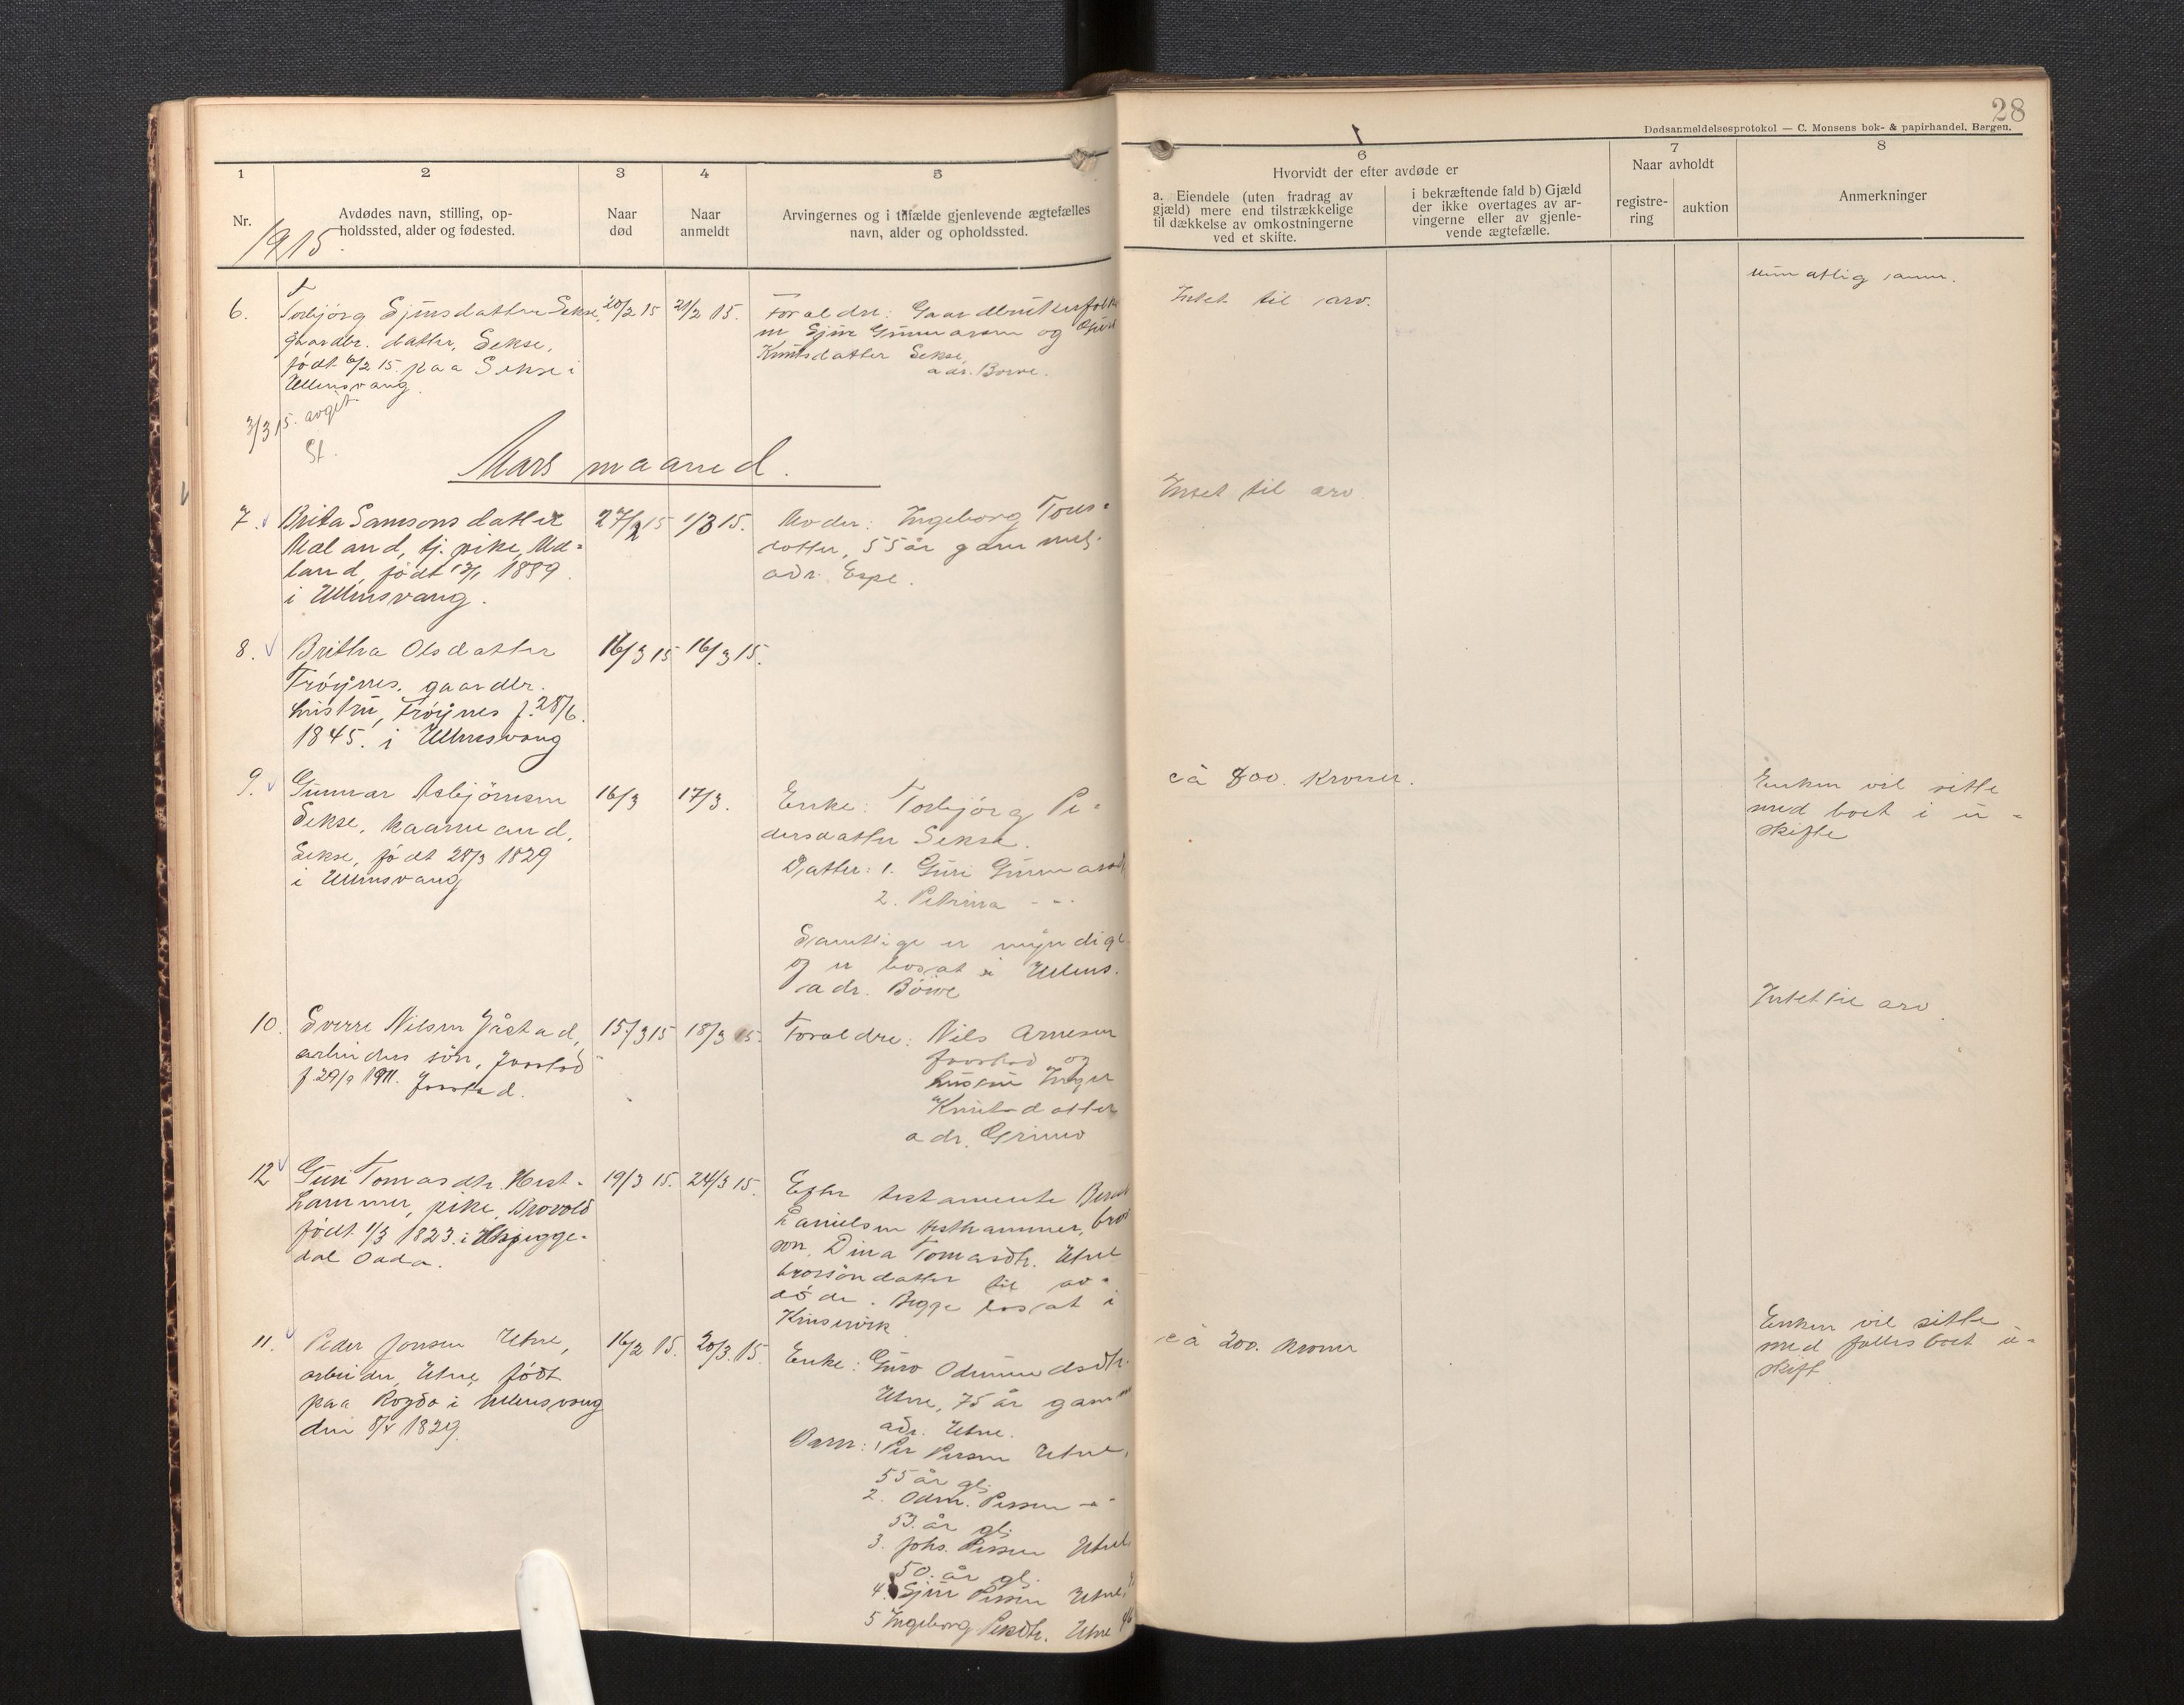 28
Dødsanmeldelsesprotokol — C. Monsens bok- & papirhandel, Bergen.
1
2
3
4
5
Nr.
Avdødes navn, stilling, op-
holdssted, alder og fødested.
Naar
død
Naar
anmeldt
Arvingernes og i tilfælde gjenlevende ægtefælles
navn, alder og opholdssted.
1915.
6
Hvorvidt der efter avdøde er
a. Eiendele (uten fradrag av
gjæld) mere end tilstrækkelige
til dækkelse av omkostningerne
ved et skifte.
i bekræftende fald b) Gjæld
der ikke overtages av ar-
vingerne eller av gjenle-
vende ægtefælle.
7
Naar avholdt
registre-
ring
auktion
8
Anmerkninger
6.
Torbjörg Sjursdatter Sekse,
gaardbr. datter, Sekse,
födt 6/2 15. paa Sekse i
Ullensvang.
20/2 15
21/2 15.
Foraldre: Gaardbrukerfolke
ne Sjur Gunnarsen og
Knutsdatter Sekse,
adr. Börve.
Intet til arv.
3/3 15. avgit
St.
Mars maaned.
7.
Brita Samsonsdatter
Mæland, tj. pike, Mæ-
land, födt 13/1 1889
i Ullensvang.
27/2 15
1/3 15.
Moder: Ingeborg Tors-
datter, 55 år gammel.
adr. Espe.
Intet til arv.
8.
Britha Olsdatter
Tröynes, gaardbr.
hustru, Tröynes f. 28/6
1845. i Ullensvang
16/3 15
16/3 15.
9.
Gunnar Asbjörnsen
Sekse, kaarmand,
Sekse, födt 28/3 1829
i Ullensvang
16/3
17/3.
Enke: Torbjörg Pe-
dersdatter Sekse.
Datter: 1. Guri Gunnarsd
2. Petrina - " -
Samtlige er myndige
og er bosat i Ullens.
adr. Börve
cà 800. Kroner.
Enken vil sitte
med boet i u-
skifte
10.
Sverre Nilsen Jåstad,
arbeiders sön, Jaastad
f. 29/9 1911. Jaastad.
15/3 15
18/3 15.
Foraldre: Nils Arnesen
Jaastad og
hustru Inger
Knutsdatter
adr. Grimo
Intet til arv.
12
Guri Tomasdtr. Hest-
hammer, pike, Brovold
födt 1/3 1823. i Skjegge-
dal Odda.
19/3 15.
24/3 15.
Efter testamente
Danielsen Hesthammer, bror
sön, Dina Tomasdtr. Utne
brorsöndatter til av-
döde. Begge bosat i
Kinservik
11.
Peder Jonsen Utne,
arbeider, Utne, födt
paa Rogdo i Ullensvang
den 8/5 1829.
16/2 15.
20/3 15.
Enke: Guro Odmundsdtr.
Utne, 75 år gammel
adr. Utne.
Barn: 1 Per Persen Utne,
55 år gl.
2. Odm. Persen - " -
53. år gl.
3. Johs. Persen Utne
50. år gl.
4. Sjur Persen Utne,
5 Ingeborg Persdtr. Utne 46
cà 200. kroner
Enken vil sitte
med fælles boet u-
skift